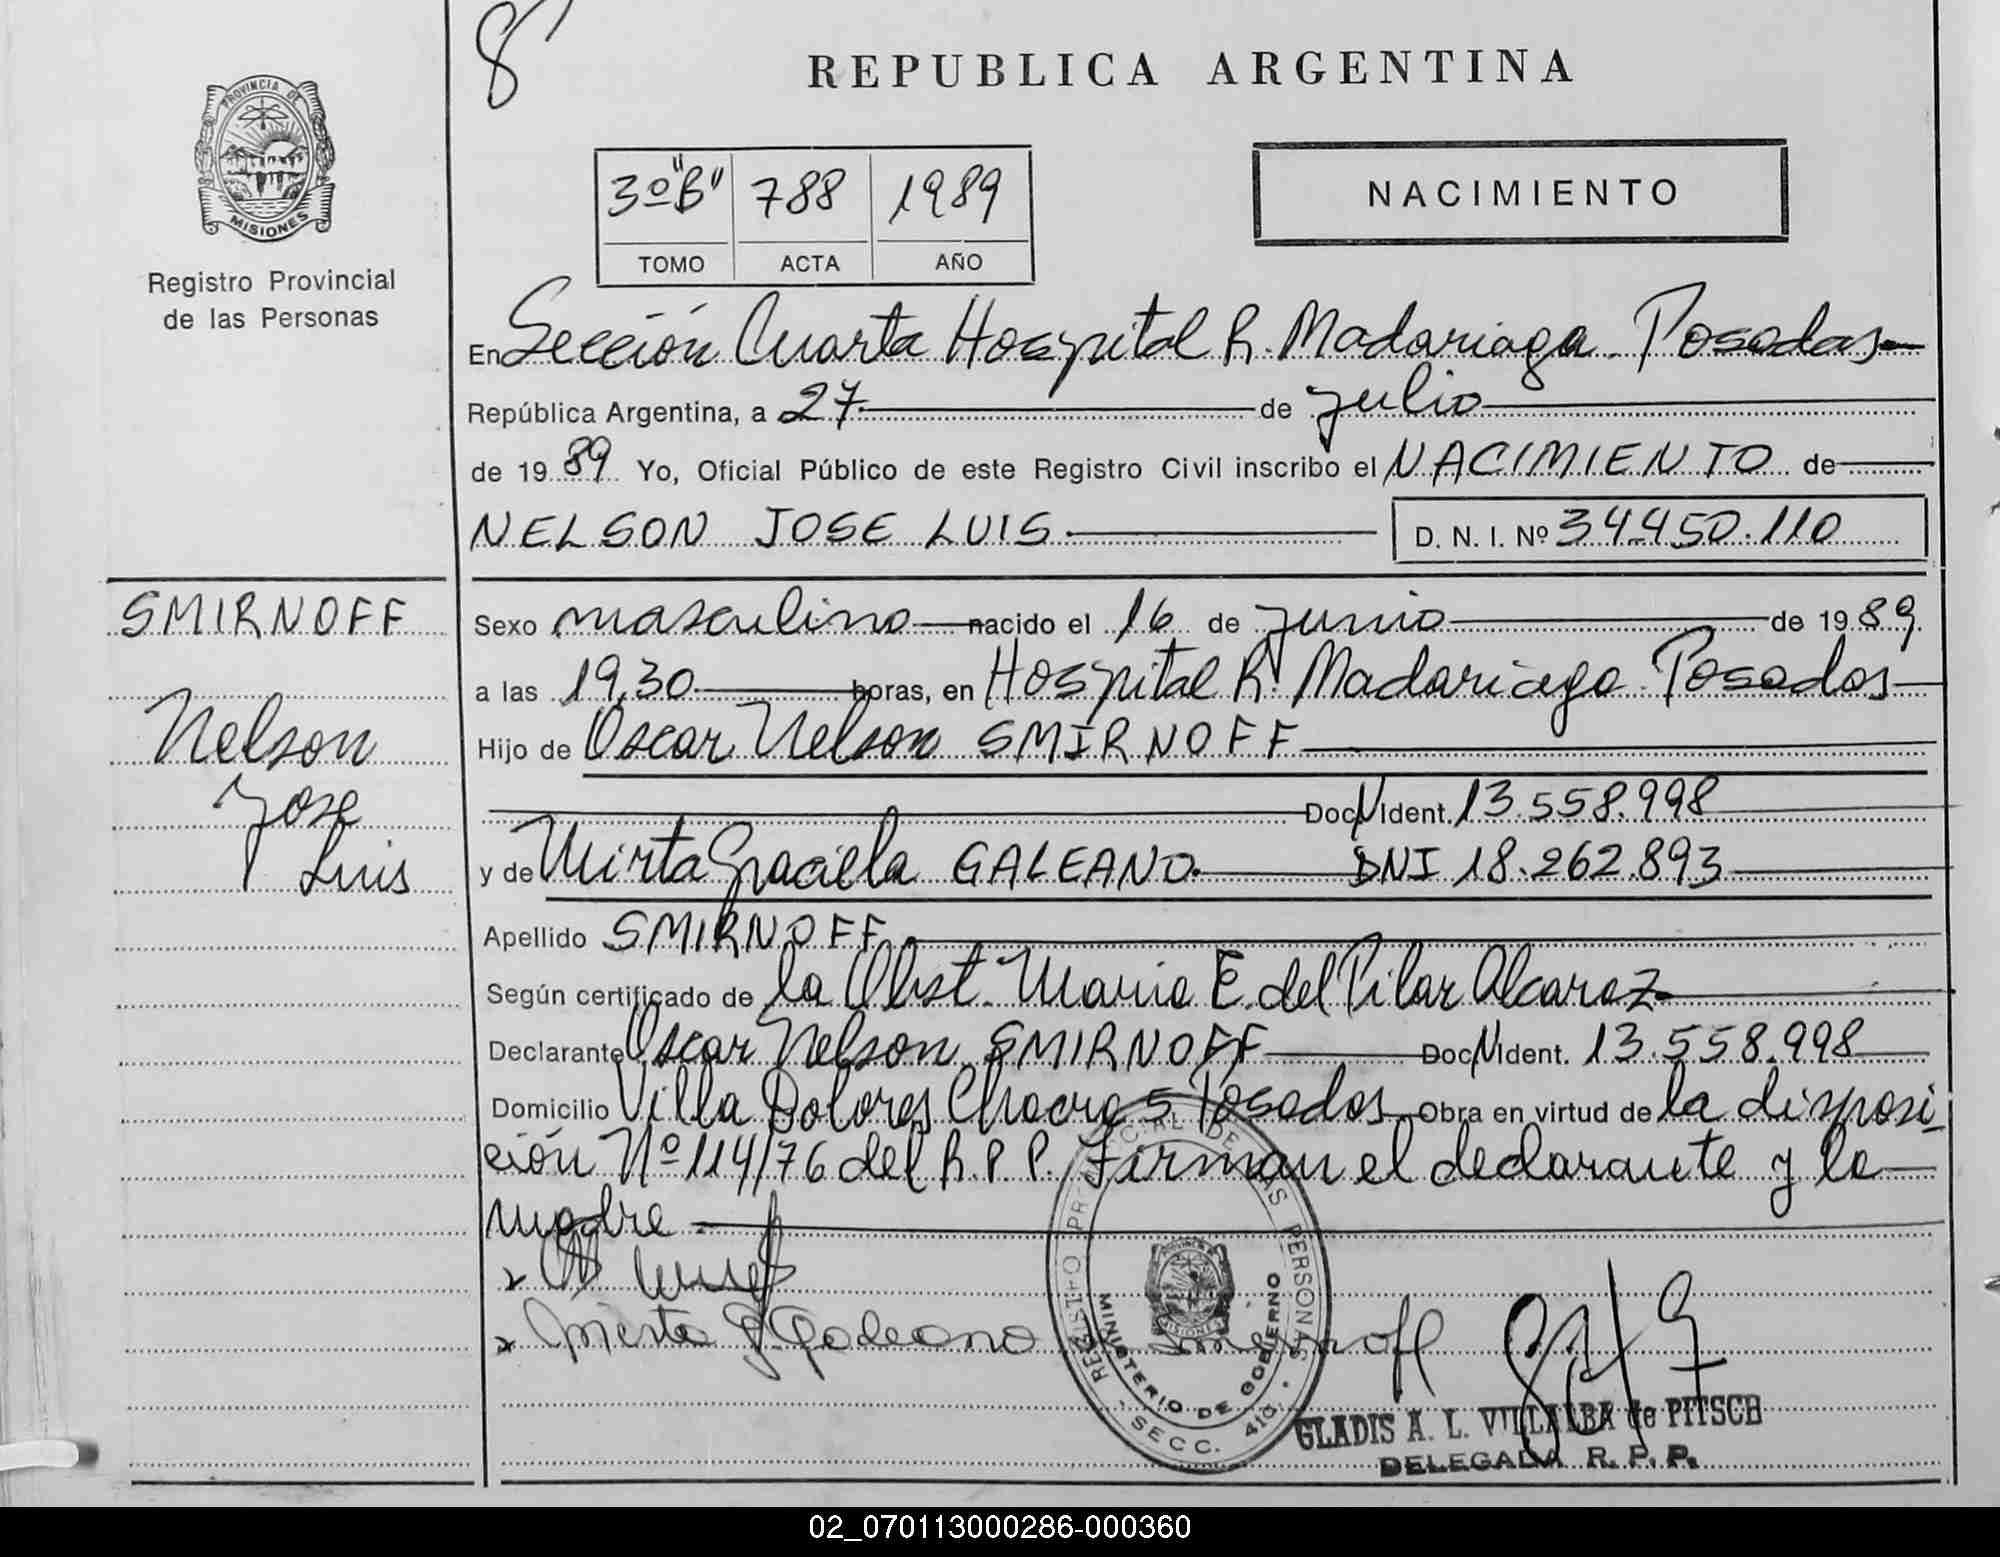 8
REPUBLICA ARGENTINA
PROVINCIA DE
MISIONES
Registro Provincial
de las Personas
3º "B" 788 1989
TOMO ACTA AÑO
NACIMIENTO
En Sección Cuarta Hospital R. Madariaga. Posadas
República Argentina, a 27 de julio
de 1989 Yo, Oficial Público de este Registro Civil inscribo el NACIMIENTO de
NELSON JOSE LUIS D. N. I. Nº 34.450.110
SMIRNOFF
Nelson
Jose
Luis
Sexo masculino nacido el 16 de junio de 1989
a las 19,30 horas, en Hospital R. Madariaga. Posadas
Hijo de Oscar Nelson SMIRNOFF
Doc. Ident. 13.558.998
y de Mirta Graciela GALEANO DNI 18.262.893
Apellido SMIRNOFF
Según certificado de la Obst. Maria E. del Pilar Alcaraz
Declarante Oscar Nelson SMIRNOFF Doc. Ident. 13.558.998
Domicilio Villa Dolores Chacra 5 Posadas Obra en virtud de la disposi-
ción Nº 114/76 del R.P.P. Firman el declarante y la
madre
Mirta G. Galeano
REGISTRO PROVINCIAL DE LAS PERSONAS
MINISTERIO DE GOBIERNO
PROVINCIA
MISIONES
SECC. 4ta.
GLADIS A. L. VILLALBA de PITSCH
DELEGADA R. P. P.
02_070113000286-000360